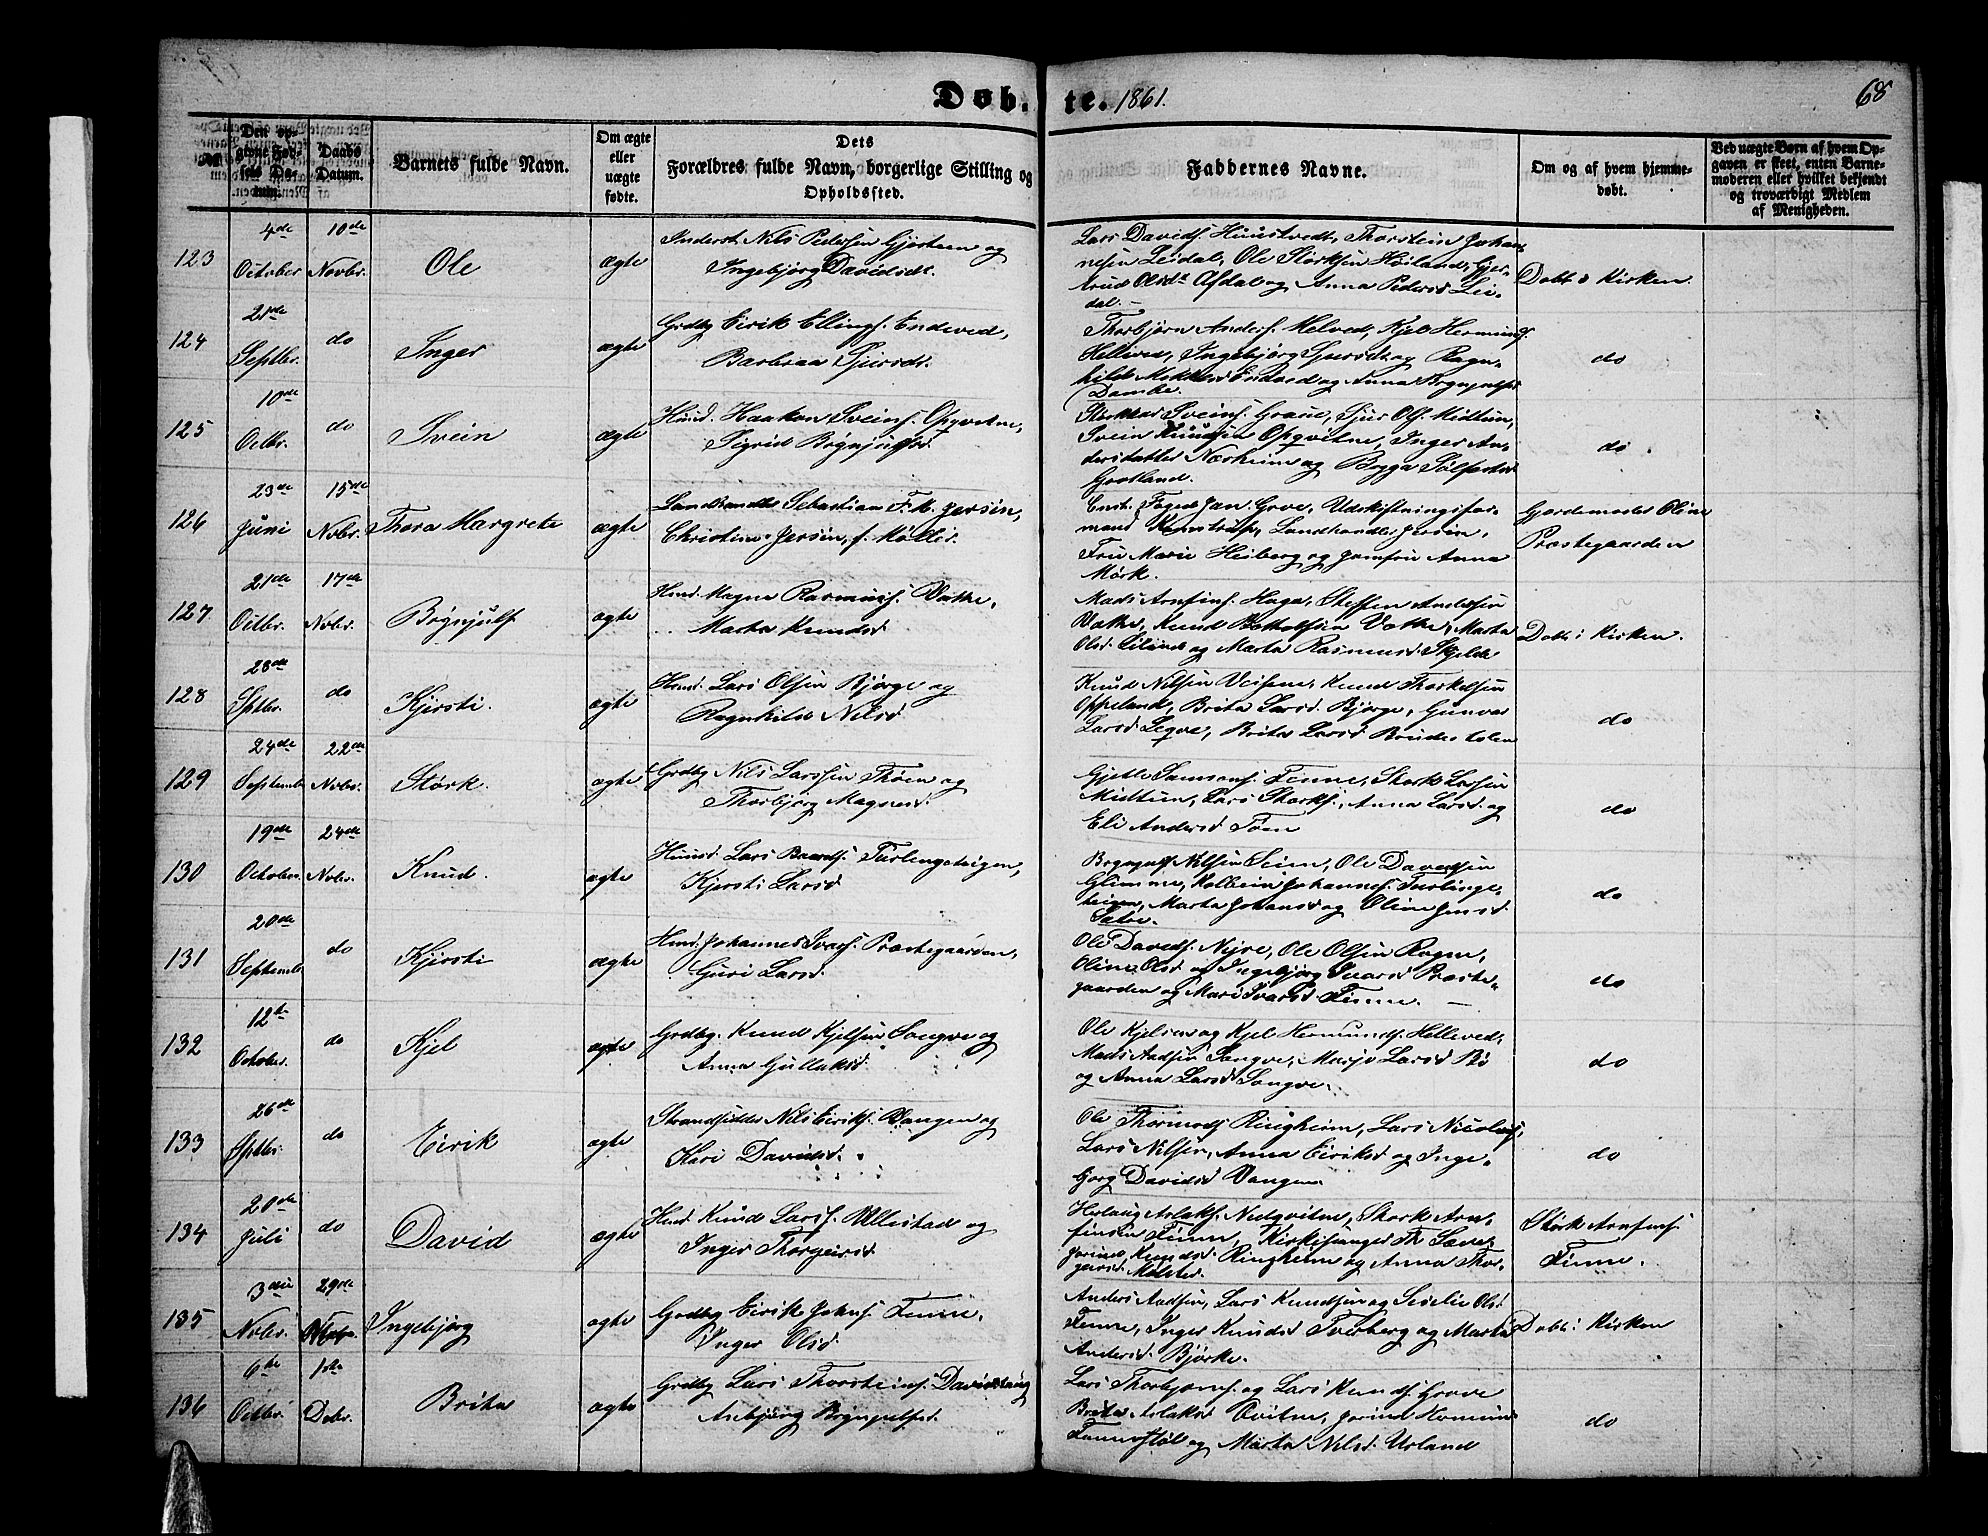 Døb- te. 1861. 68
№ Den opgivne Fødsels Datum. Daabs Datum. Barnets fulde Navn. Om ægte eller uægte fødte. Dets Forældres fulde Navn, borgerlige Stilling og Opholdssted. Faddernes Navne. Om og af hvem hjemmedøbt. Ved uægte Børn af hvem Opgaven er skeet, enten Barnemoderen eller hvilket bekjendt og troværdigt Medlem af Menigheden.
123 4de October 10de Novbr. Ole ægte Inderst Nils Pedersen Gjerstein og
Ingebjørg Davidsdt.
Lars Davids. Huustvedt, Thorstein Johan-
nesen Leidal, Ole Størksen Høiland, Gjer-
trud Olsdt Afdal og Anna Pedersd Lei-
dal.
Døbt i Kirken.
124 21de Septbr. do Inger ægte Grdbg Eirik Ellings. Endeved,
Barbraa Sjursdt.
Thorbjørn Anders. Helved, Kjel Hermunds.
Helleved, Ingebjørg Sjursdt og Ragn-
hild Endeved og Anna Brynjulfsd
Dambe.
do
125 10de Octbr. do Svein ægte Huusd. Haakon Sveins. Opqvitne,
Sigrid Brynjulfsd.
Sveins. Graue, Sjur Ols. Midtun,
Svein Knudsen Opqvitne, Inger An-
dersdatter Nærheim og Brygga Sølfestsd
Grotland.
do
126 23de Juni 15de Novbr. Thora Margrete ægte Landhandler Sebastian F. K. Jersin,
Christine Jersin, f. Møller.
Const. Foged Jan Greve, Udskiftningsfor-
mand Landhandler Jersin,
Fru Marie Heiberg og Jomfru Anna
Mørk.
Gjordemoder Oline
Præstegaarden
127 21de Octbr. 17de Nobr. Brynjulf ægte Huusd. Magne Rasmus. Væthe,
Marta Knudsd
Mads Arnfins. Haga, Steffen Andersen
Væthe, Knud Væthe, Marta
Olsd. Lilland og Marta Rasmusd Skjelde
Døbt i Kirken.
128 28de Sptbr. do Kjersti. ægte Huusd. Lars Olsen Bjørge og
Ragnhild Nilsd
Knud Nilsen Knud Thorkelsen
Oppeland, Brita Larsd. Bjørge, Gunvor
Larsd Leqve, Brita Larsd
do
129 24de Septemb 22de Nobr. Størk. ægte Grdbg Nils Larssen Thøen og
Thorbjørg Magnesd.
Gjetle Samsons. Finne, Størk Larsen
Midtun, Lars Størks., Anna Larsd og
Eli Andersd Tøen
do
130 19de October 24de Nobr. Knud. ægte Huusd. Lars Baards. Tirlingeteigen,
Kjersti Larsd
Brynjulf Nilsen Seim, Ole Davidsen
Glimme, Kolbein Johannes. Tirlinge-
teigen, Marta Johansd og Oline Jensd
Sætre.
do
131 20de Septemb do Kjersti ægte Huusd. Johannes Ivars. Præstegaarden,
Guri Larsd.
Ole Davids. Nyre, Ole Olsen Rogne,
Oline Olsd og Ingebjørg Ivarsd Præste-
gaarden og Mari Ivarsd Finne.
do
132 12te October. do Kjel ægte Grdbg. Knud Kjelsen Songve og
Anna Gullaksd
Ole Kjelsen og Kjel Hermunds. Helleved,
Mads Aadsen Songve, Marjo Larsd Bø
og Anna Larsd Songve.
do
133 26de Sptbr. do Eirik ægte Strandsidder Nils Eiriks. Vangen og
Kari Davidsd.
Ole Thormods. Ringheim, Lars Nicolais.
Lars Nilsen, Anna Eiriksd og Inge-
bjorg Davidsd Vangen.
do
134 20de Juli do David ægte Huusd. Knud Larss. Ullestad og
Inger Thorgeirsd
Herlaug Aslaks. Nedqvitne, Størk Arn-
finsen Finne, Kirkesanger Th. Sæve,
Jorina Knudsd. Ringheim og Anna Thor-
geirsd. Mølster.
Størk Arnfins.
Finne.
135 3die Nobr. 29de Ingebjørg ægte Grdbg Eirik Johns. Finne,
Inger Olsd
Anders Aadsen, Lars Knudsen og Seselie Olsd
Finne, Inger Knudsd Tverberg og Marta
Andersd. Bjørke.
Døbt i Kirken
136 6te Octbr. 1ste Debr. Brita ægte Grdbg Lars Thorsteins. Davidhaug
Asbjørg Brynjulfsd.
Lars Thorbjørns. og Lars Knuds. Grove
Brita Aslaksd Qvitne, Jorina
og Marta Nilsd. Urland
do